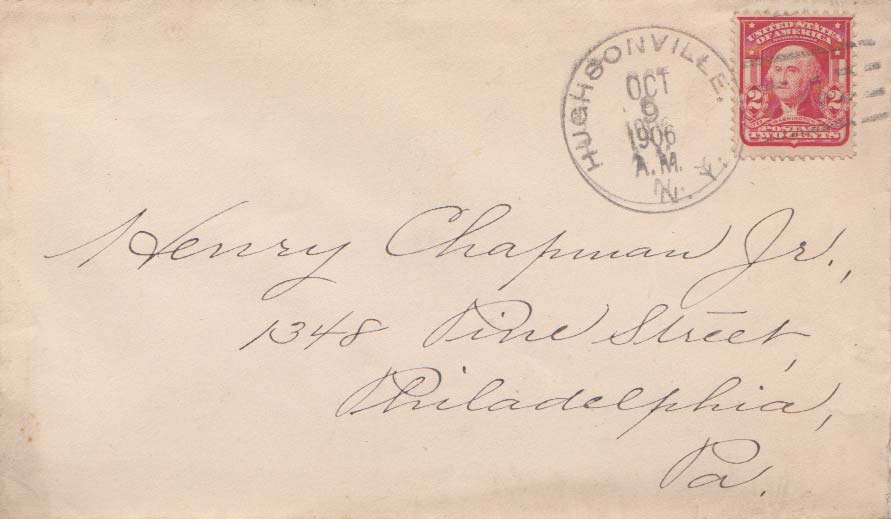 HUGHSONVILLE,
OCT
9
1906
A.M.
N. Y.
UNITED STATES
OF AMERICA
2 2
WASHINGTON
POSTAGE
TWO CENTS
Henry Chapman Jr.,
1348 Pine Street,
Philadelphia,
Pa.